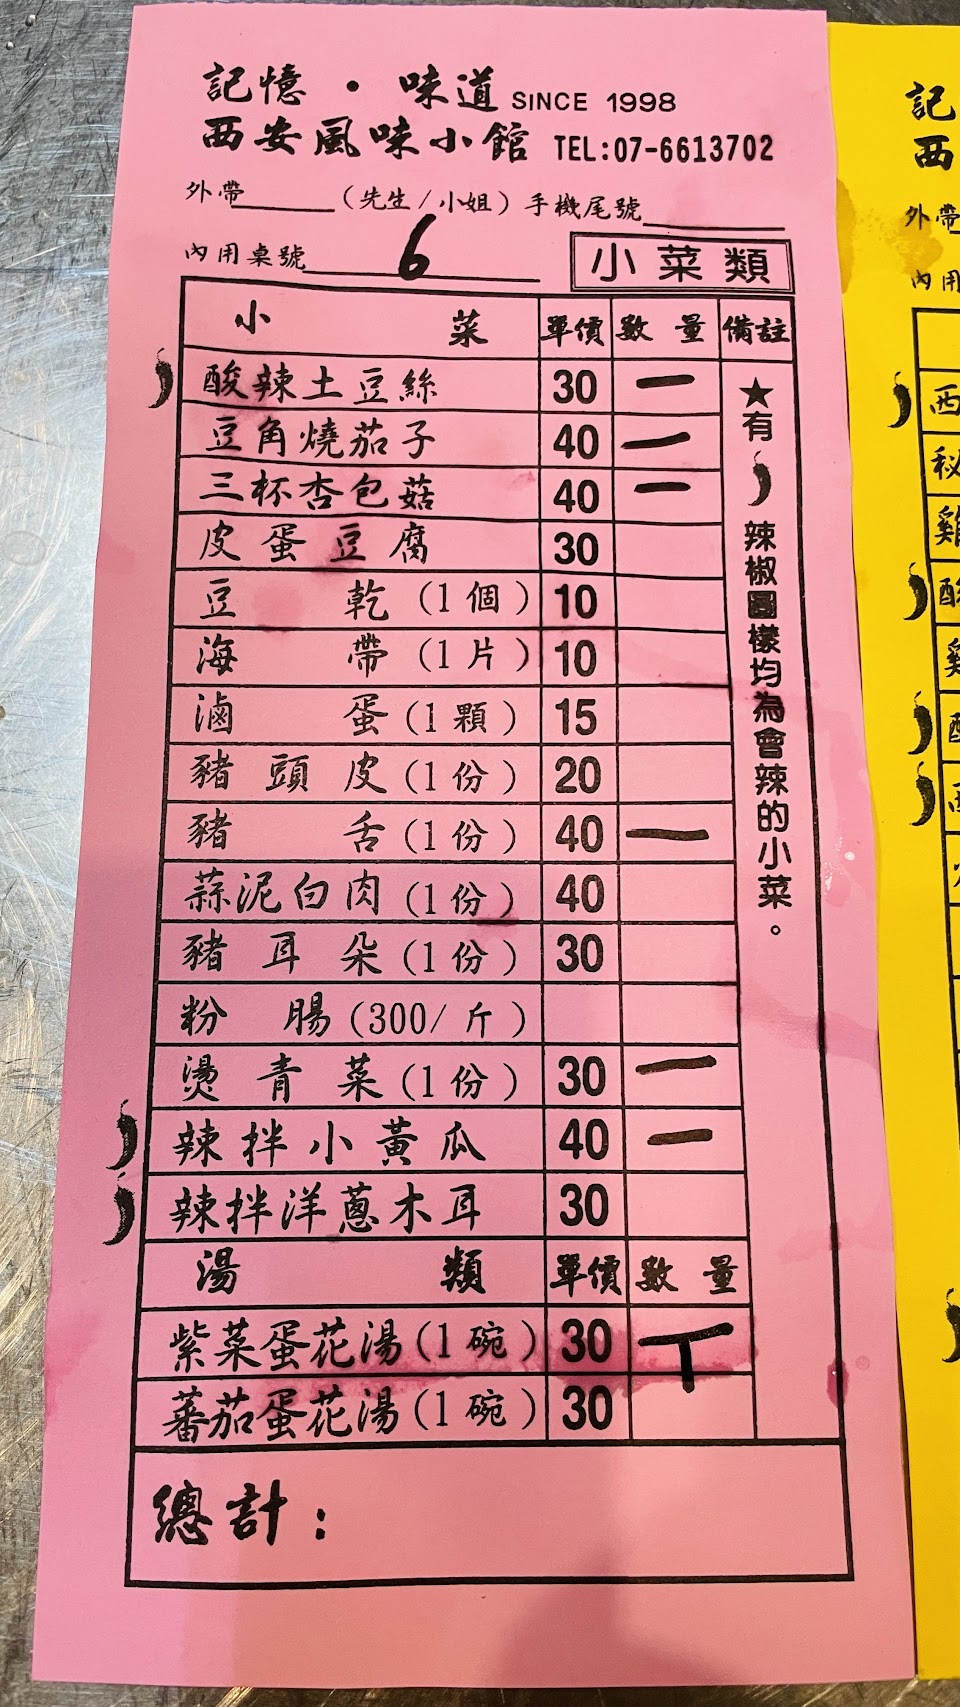 記憶・味道 SINCE 1998
西安風味小館 TEL:07-6613702
外帶______(先生/小姐)手機尾號______
內用桌號 6 小菜類
小菜 單價 數量 備註
酸辣土豆絲 30 一
豆角燒茄子 40 一
三杯杏包菇 40 一
皮蛋豆腐 30
豆乾(1個) 10
海帶(1片) 10
滷蛋(1顆) 15
豬頭皮(1份) 20
豬舌(1份) 40 一
蒜泥白肉(1份) 40
豬耳朵(1份) 30
粉腸(300/斤)
燙青菜(1份) 30 一
辣拌小黃瓜 40 一
辣拌洋蔥木耳 30
★有辣椒圖樣均為會辣的小菜。
湯類 單價 數量
紫菜蛋花湯(1碗) 30 丅
蕃茄蛋花湯(1碗) 30
總計:
記
西
外帶
內用
西
秘
雞
酸
雞